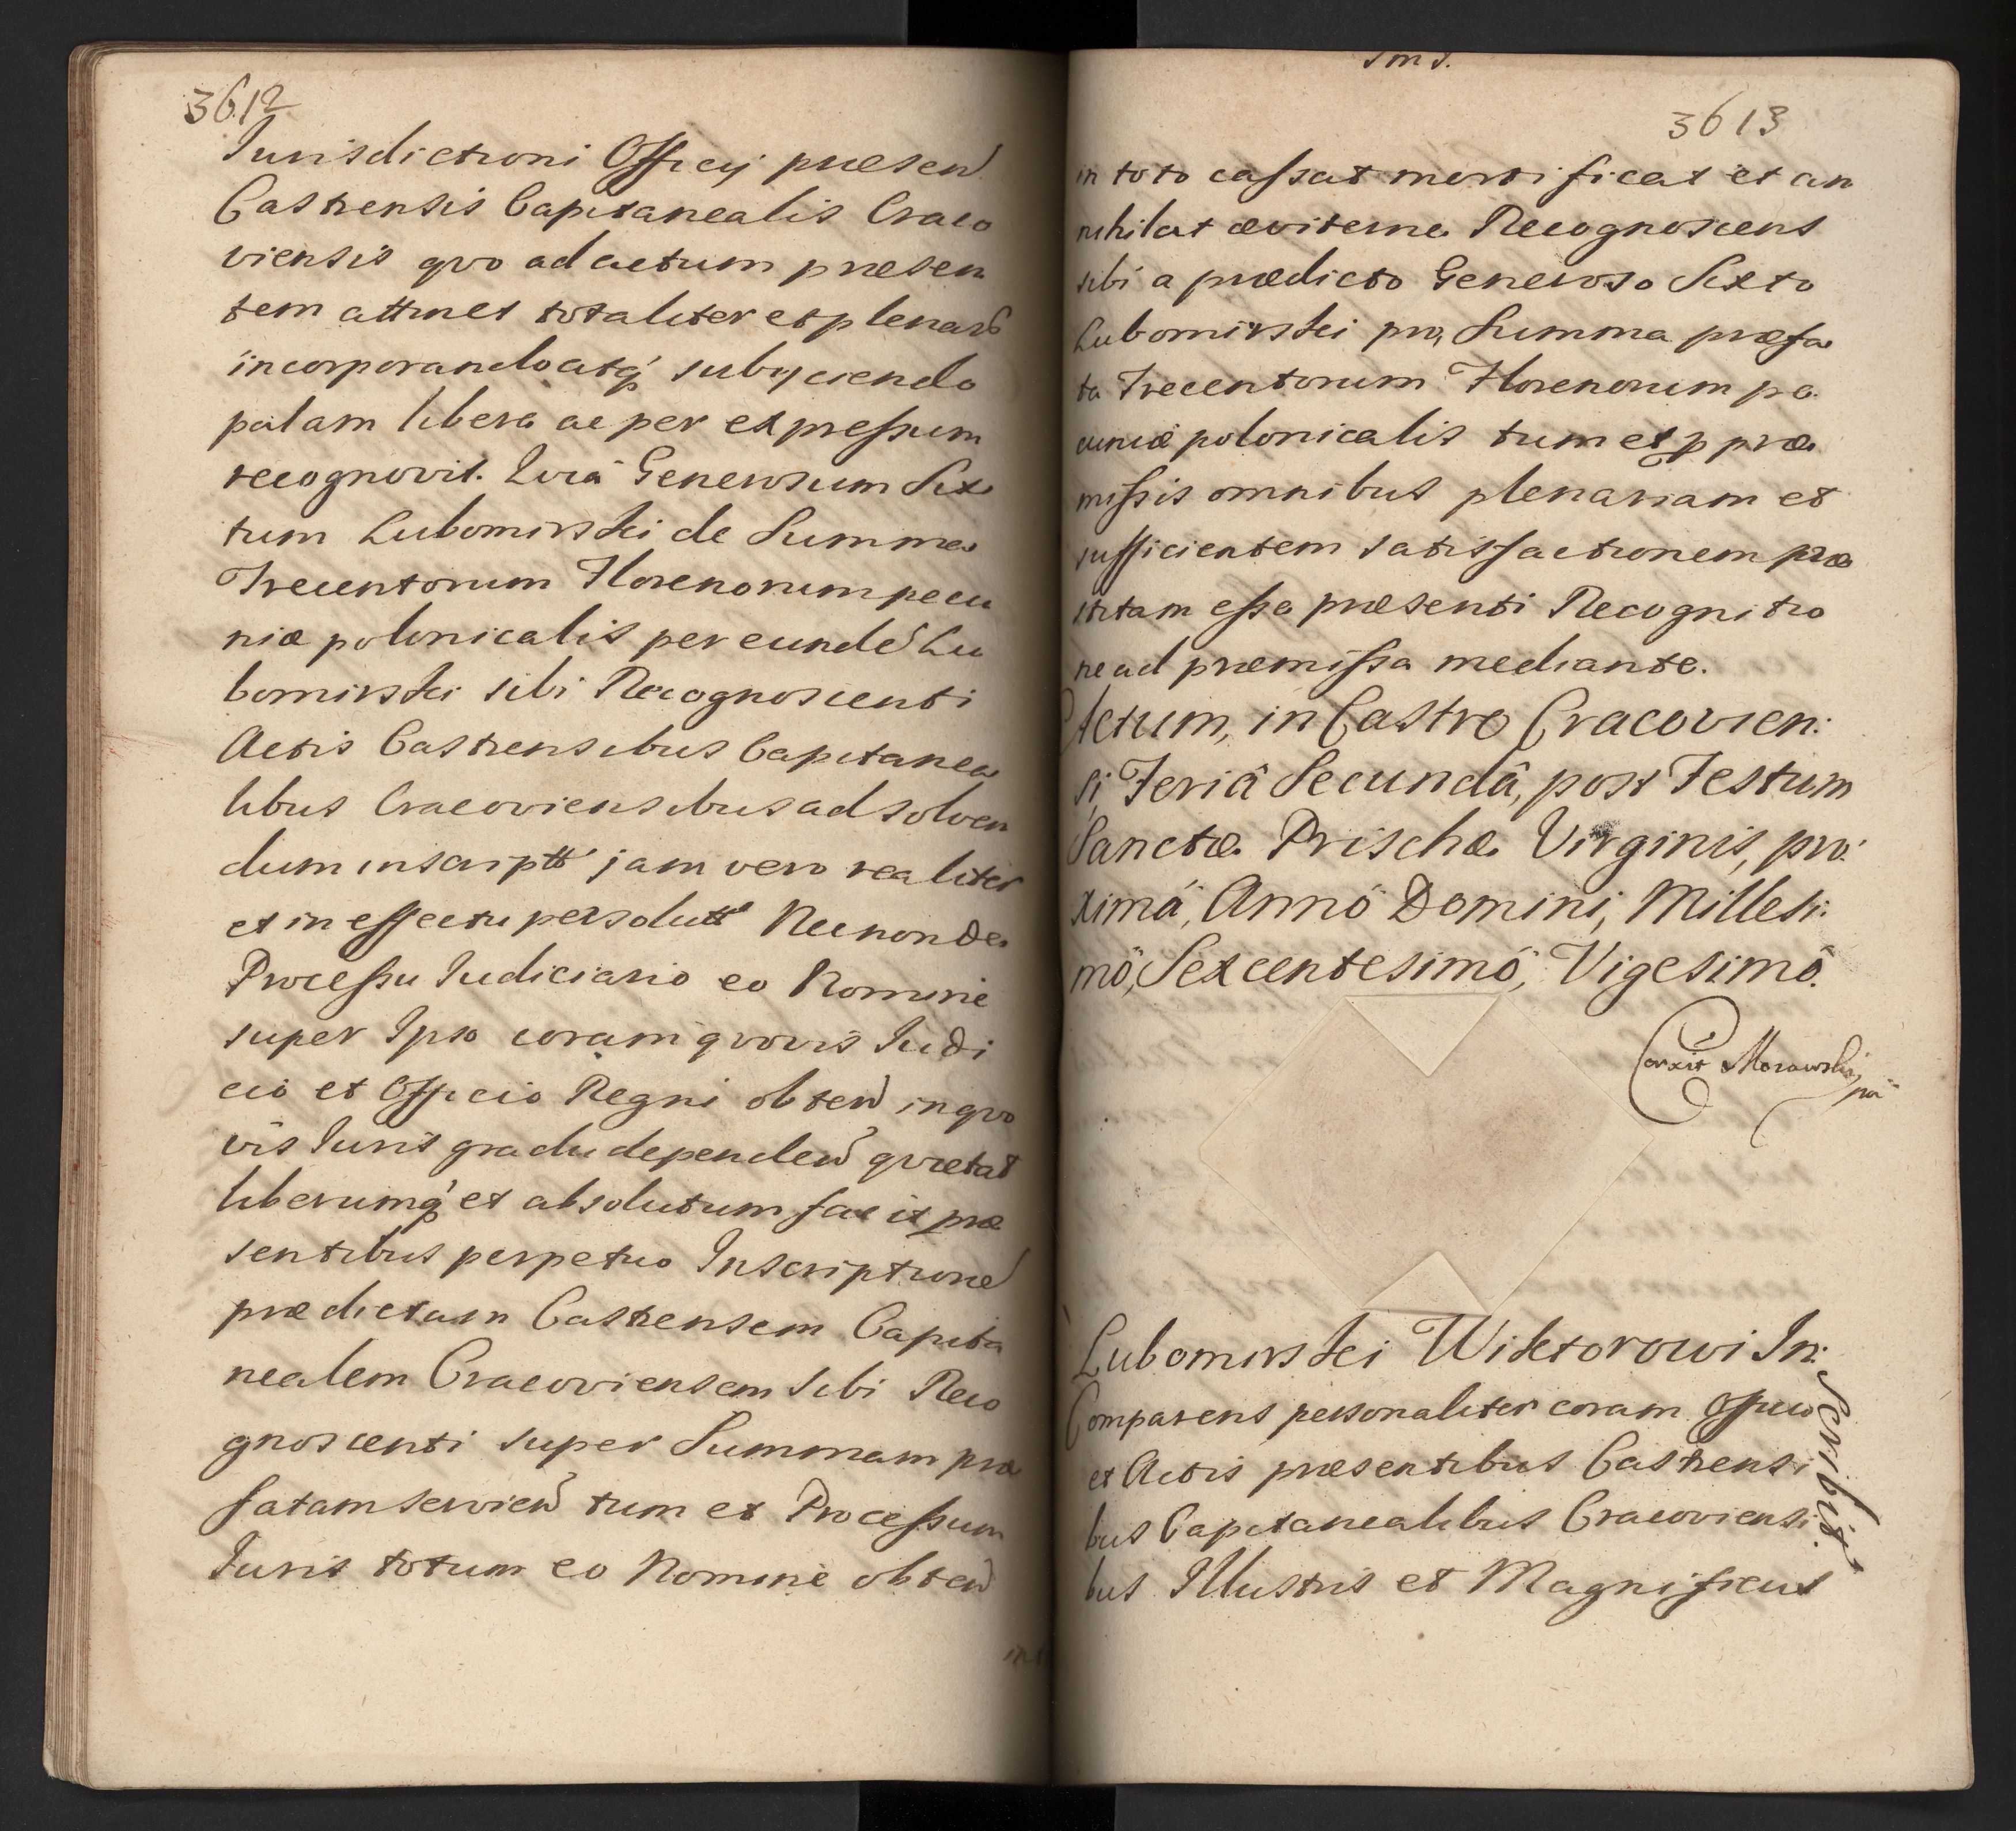 3612
Jurisdictioni Officij præsen
Castrensis Capitanealis Craco
viensis qvo ad actum præsen
tem attinet totaliter et plenarie
incorporando atq́ subijciendo
palam libere ac per expreſsum
recognovit. Qvia Generosum Six
tum Lubomirski de Summa
Trecentorum Florenorum pecu
niæ polonicalis per eundē Lu
bomirski sibi Recognoscenti
Actis Castrensibus Capitanea
libus Cracoviensibus ad solven
dum inscriptt jam vero realiter
et in effectu persolutt Necnon de
Proceſsu Judiciario eo Nomine
super Ipso coram qvovis Judi
cio et Officio Regni obten in qvo
vis Juris gradu dependen qvietat
liberumq́ et absolutum facit præ
sentibus perpetuo Inscriptionē
prædictam Castrensem Capita
nealem Cracoviensem sibi Reco
gnoscenti super Summam præ
fatam servien tum et Proceſsum
Juris totum eo Nomine obten
3613
in toto caſsat mortificat et an
nihilat æviterne Recognoscens
sibi a prædicto Generoso Sixto
Lubomirski pro Summa præfa
ta Trecentorum Florenorum pe
cuniæ polonicalis tum et p præ
miſsis omnibus plenariam et
sufficientem satisfactionem præ
stitam eſse præsenti Recognitio
ne ad præmiſsa mediante.
Actum, in Castro Cracovien:
si, Feriâ Secundâ, post Festum
Sanctæ Prischæ Virginis, pro:
ximâ, Annô Domini, Millesi:
mô, Sexcentesimô, Vigesimô.
Corexit Morawski
Lubomirski Wiktorowi In:
scribit
Comparens personaliter coram Officio
et Actis præsentibus Castrensi
bus Capitanealibus Cracoviensi
bus Illustris et Magnificus